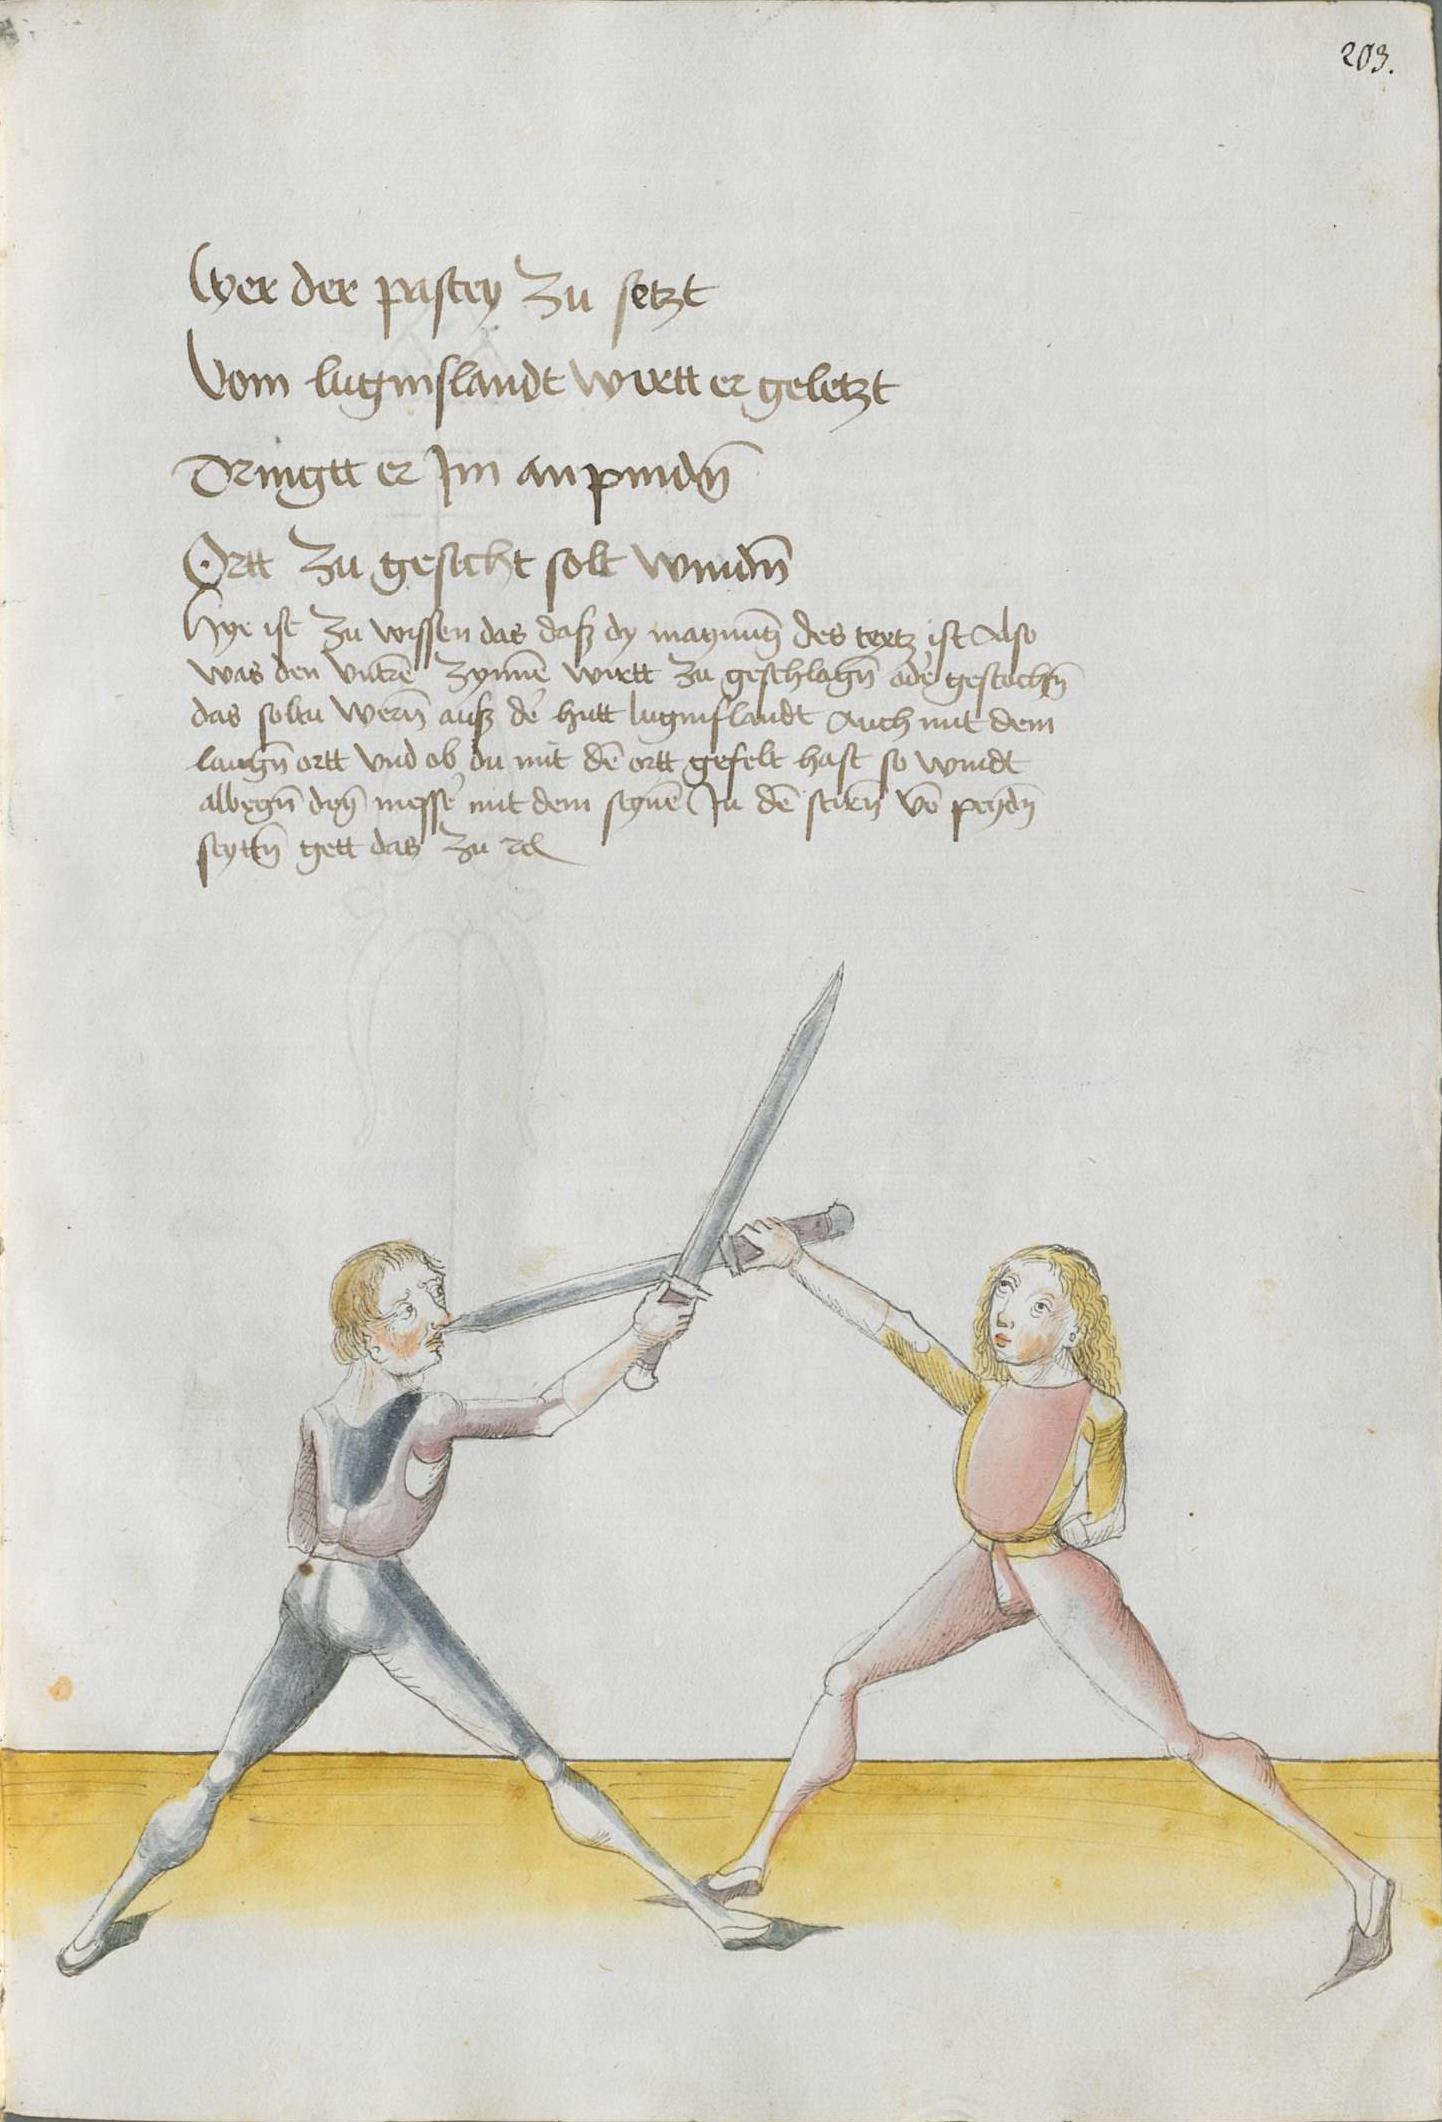 203.
Wer der pastey zu setzt
Vom luginslandt wirtt er geletzt
Dringtt er Im an pindn̄
Ortt zu gesicht solt windn̄
Hye ist zu wissen das daß dy maynūg des textz ist Also
was den vntrē zynnē wirtt zu geschlagn̄ oder gestochn̄
das soltu wern̄ auß der hutt luginslandt Auch mit dem
langn̄ ortt vnd ob du mit dē ortt gefelt hast so windt
albegn̄ dein messer mit dem seynē In dē stirn̄ vō peydn̄
seyttn̄ gett das zu